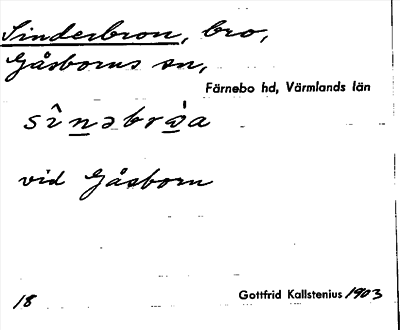 Sinderbron, bro,
Gåsborns sn,
Färnebo hd, Värmlands län
vid Gåsborn
18 Gottfrid Kallstenius 1903